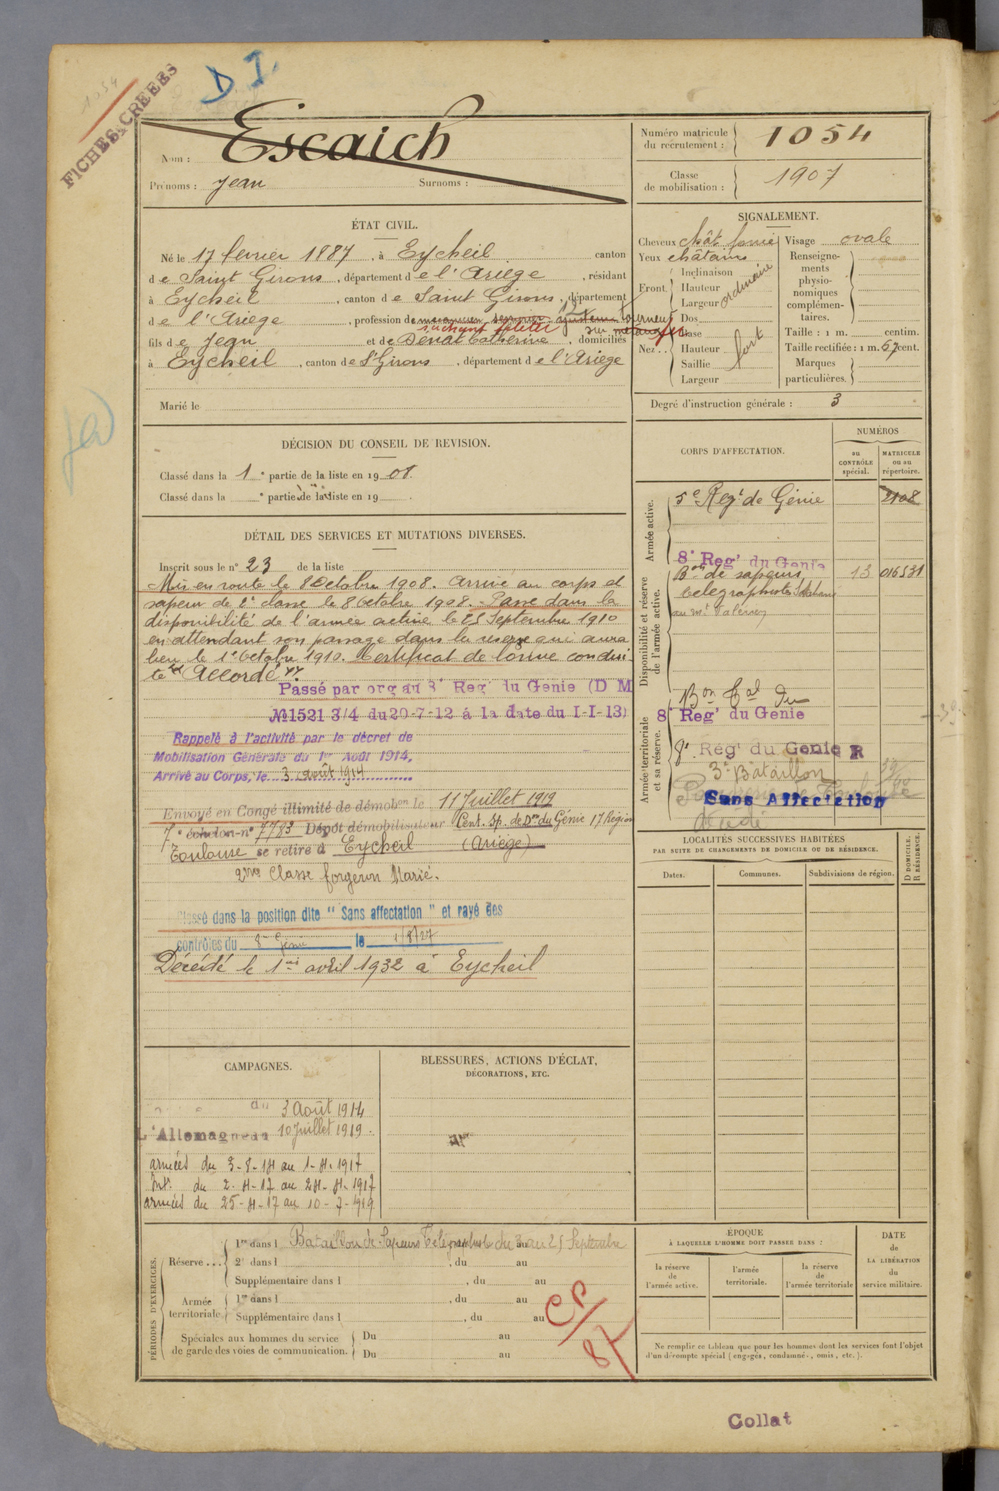 1054
FICHES CREEES
D I.
Nom : Escaich
Prénoms : Jean Surnoms :
Numéro matricule du recrutement : 1054
Classe de mobilisation : 1907
ÉTAT CIVIL.
Né le 17 février 1887, à Eycheil canton
de Saint Girons, département de l'Ariège, résidant
à Eycheil, canton de Saint Girons, département
de l'Ariège, profession de tourneur
sur métaux
fils de Jean et de Denat Catherine, domiciliés
à Eycheil, canton de St Girons, département de l'Ariège
Marié le
SIGNALEMENT.
Cheveux chât foncé
Yeux châtains
Front. Inclinaison
Hauteur
Largeur
ordinaire
Nez.. Dos
Base
Hauteur
Saillie
Largeur
fort
Visage ovale
Renseignements physionomiques complémentaires.
Taille : 1 m. centim.
Taille rectifiée : 1 m. 67 cent.
Marques particulières.
Degré d'instruction générale : 3
DÉCISION DU CONSEIL DE REVISION.
Classé dans la 1e partie de la liste en 1908.
Classé dans la e partie de la liste en 19
DÉTAIL DES SERVICES ET MUTATIONS DIVERSES.
Inscrit sous le n° 23 de la liste
Mis en route le 8 Octobre 1908. Arrivé au corps et
sapeur de 2e classe le 8 Octobre 1908. Passé dans la
disponibilité de l'armée active le 25 Septembre 1910
en attendant son passage dans la réserve qui aura
lieu le 1er Octobre 1910. Certificat de bonne condui
te "Accordé".
Passé par org au 8e Regt du Genie (D M
№1521 3/4 du 20-7-12 á la date du I-I-13)
Rappelé à l'activité par le décret de
Mobilisation Générale du 1er Août 1914,
Arrivé au Corps, le 3 Août 1914
Envoyé en Congé illimité de démobon le 11 Juillet 1919
7e échelon n° 7783 Dépôt démobilisateur Cent. Sp. de Dem du Génie 17 Région
Toulouse se retire à Eycheil (Ariège)
2me Classe forgeron Marié.
Classé dans la position dite "Sans affectation" et rayé des
contrôles du 8me Génie le 1/8/27
Décédé le 1er avril 1932 à Eycheil
CORPS D'AFFECTATION.
NUMÉROS
au CONTRÔLE spécial.
MATRICULE ou au répertoire.
Armée active.
5e Regt de Génie 2108
8e Regt du Genie
Disponibilité et réserve de l'armée active.
Bon de sapeurs 13 016531
télégraphistes
au Mt Valérien
Armée territoriale et sa réserve.
Bon Cal du
8e Regt du Genie
8e Regt du Genie R
3e Bataillon
Sans Affectation
décédé
LOCALITÉS SUCCESSIVES HABITÉES
PAR SUITE DE CHANGEMENTS DE DOMICILE OU DE RÉSIDENCE.
D DOMICILE. R RÉSIDENCE.
Dates. Communes. Subdivisions de région.
CAMPAGNES.
du 3 Août 1914
L'Allemagne au 10 Juillet 1919.
armées du 3-8-14 au 1-4-1917
Int. du 2-4-17 au 24-4-1917
armées du 25-4-17 au 10-7-1919
BLESSURES, ACTIONS D'ÉCLAT,
DÉCORATIONS, ETC.
PÉRIODES D'EXERCICES.
Réserve... 1re dans l Bataillon de Sapeurs Télégraphistes du au 25 Septembre
2e dans l , du au
Supplémentaire dans l , du au
Armée territoriale 1re dans l , du au
Supplémentaire dans l , du au
Spéciales aux hommes du service de garde des voies de communication. Du au
Du au
CP/87
ÉPOQUE
À LAQUELLE L'HOMME DOIT PASSER DANS :
la réserve de l'armée active.
l'armée territoriale.
la réserve de l'armée territoriale
DATE de LA LIBÉRATION du service militaire.
Ne remplir ce tableau que pour les hommes dont les services font l'objet
d'un décompte spécial (engagés, condamnés, omis, etc.).
Collat